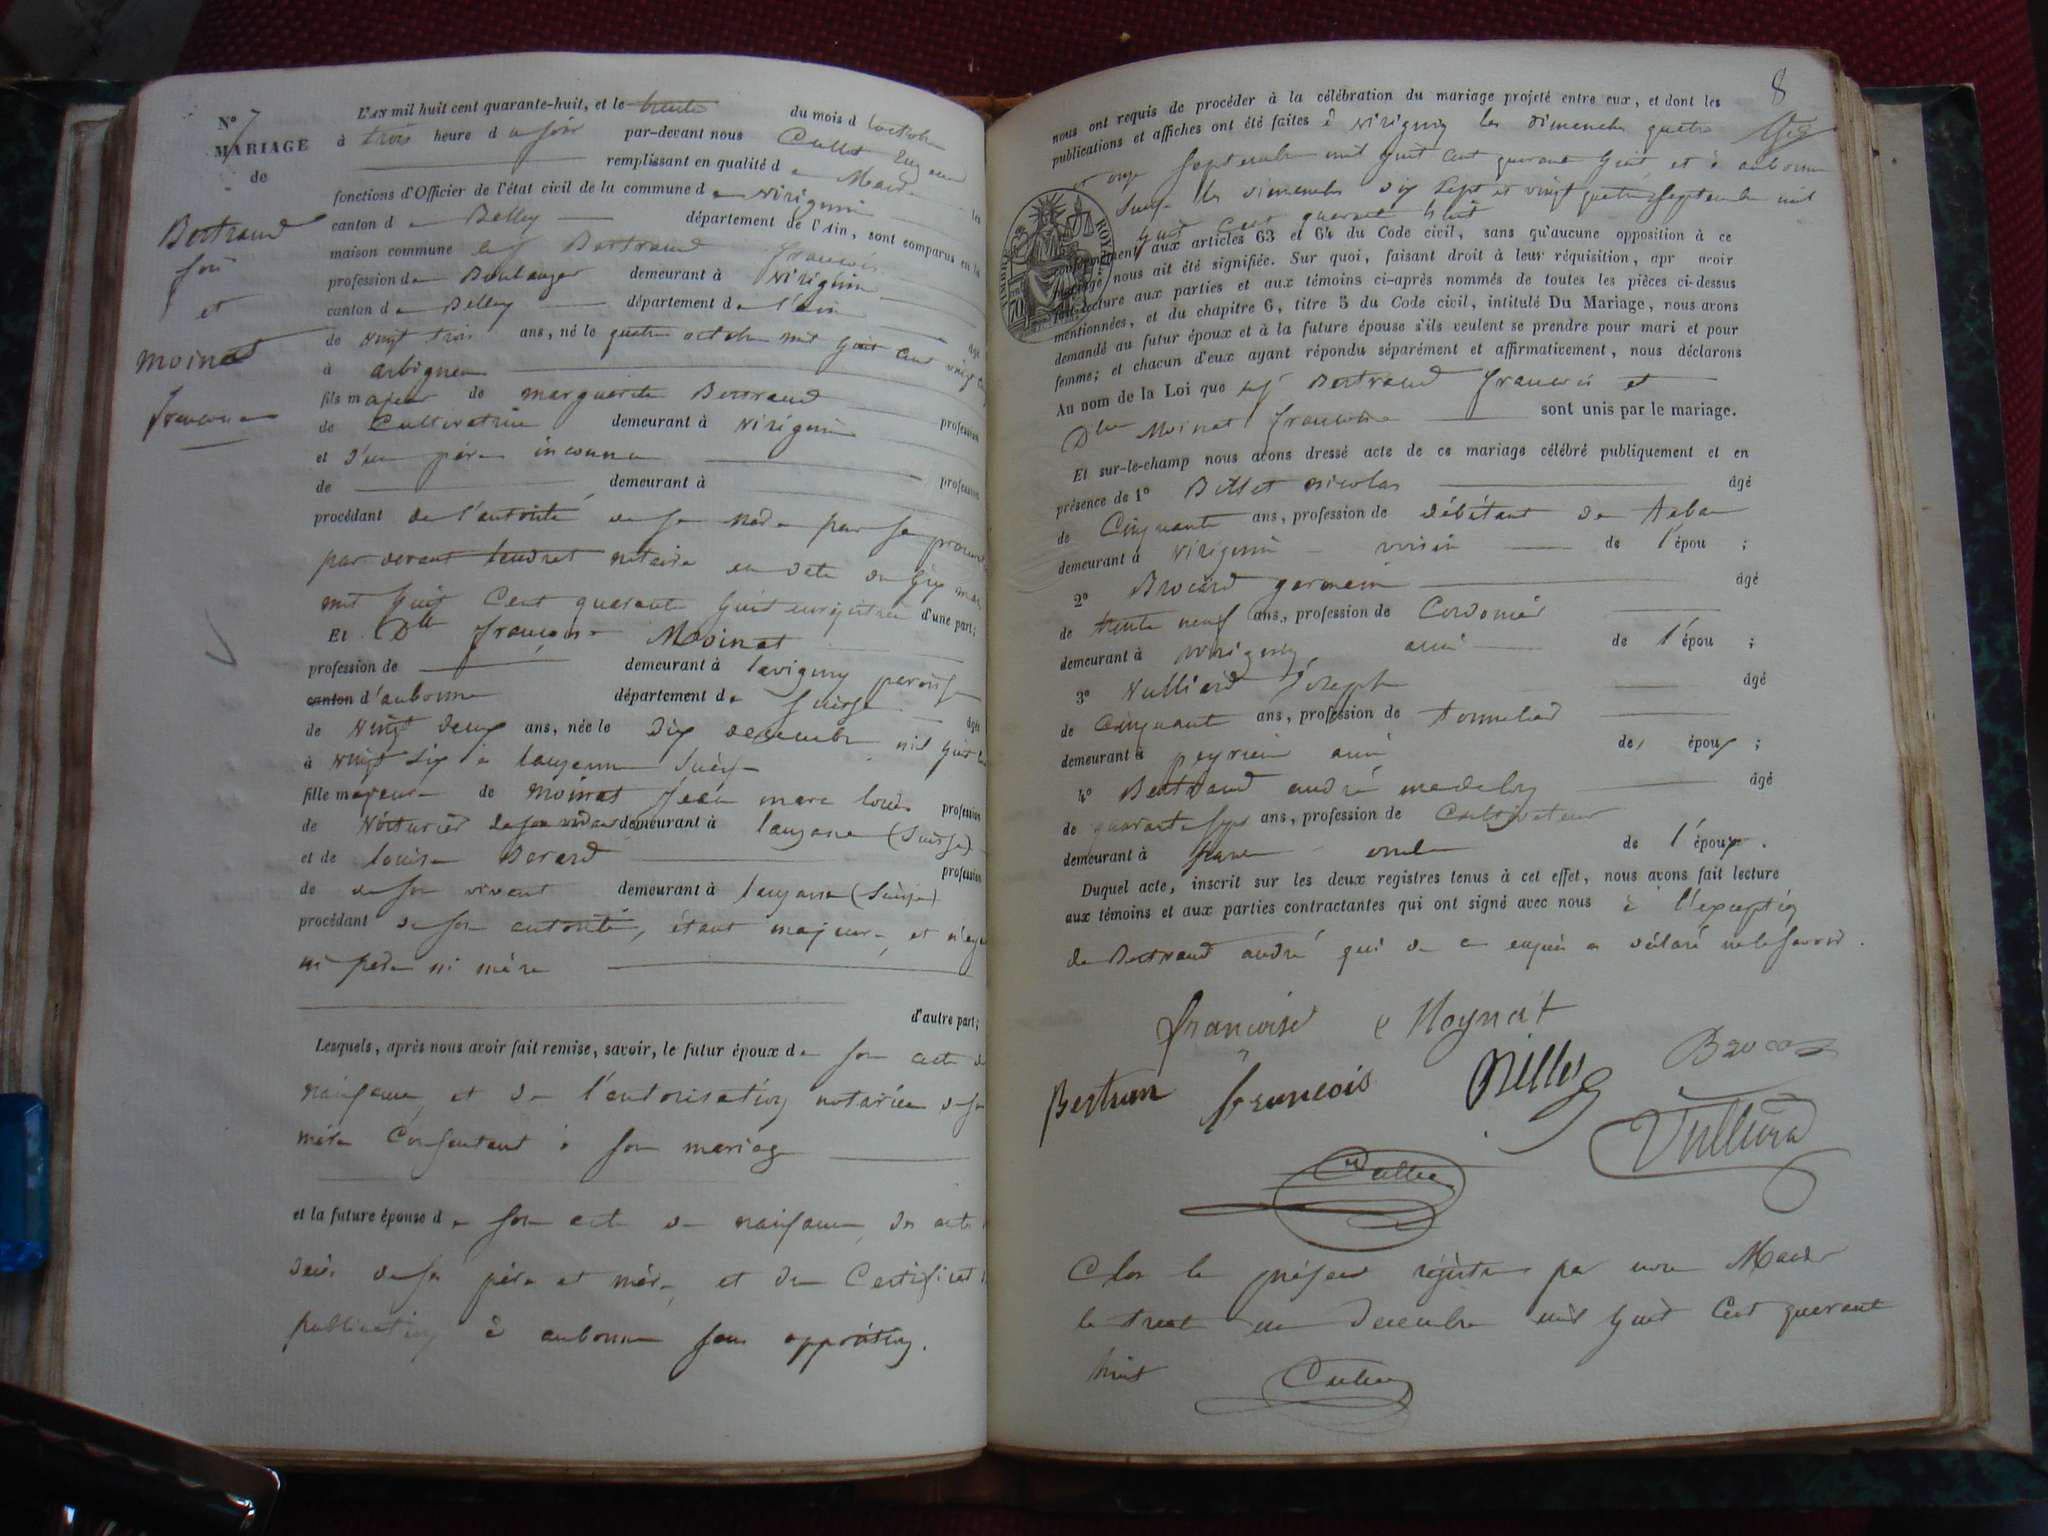 N° 7
MARIAGE
de
Bertrand
et
Moinat
francoise
L'AN mil huit cent quarante-huit, et le trente du mois d'octobre
à trois heure du soir par-devant nous Cullet
remplissant en qualité de Maire les
fonctions d'Officier de l'état civil de la commune de Virignin
canton de Belley département de l'Ain, sont comparus en la
maison commune Bertrand françois
profession de Boulanger demeurant à Virignin
canton de Belley département de l'ain âgé
de vingt trois ans, né le quatre octobre mil huit cent vingt
à arbignieu
fils majeur de marguerite Bertrand profession
de Cultivatrice demeurant à Virignin
et d'un père inconnu profession
de demeurant à
procédant de l'autorité de sa mère par sa
par devant notaire en date du dix
mil huit Cent quarante huit enregistrée d'une part;
Et Dlle françoise Moinat
profession de demeurant à lavigny paroisse
canton d'aubonne département de Suisse âgée
de vingt deux ans, née le Dix decembre mil huit cent
à vingt six à lauzanne Suisse
fille majeure de Moinat Jean marc louis profession
de demeurant à lauzane (Suisse)
et de louise Berard profession
de de son vivant demeurant à lauzane (Suisse)
procédant de son autorité, étant majeure, et n'ayant
ni père ni mère
d'autre part;
Lesquels, après nous avoir fait remise, savoir, le futur époux de son acte de
naissance, et de l'autorisation notariée de sa
mère Consentant à son mariage
et la future épouse de son acte de naissance, des actes
décès de ses père et mère, et du Certificat de
publication à aubonne sans opposition.
8
nous ont requis de procéder à la célébration du mariage projeté entre eux, et dont les
publications et affiches ont été faites à Virignin les dimanches quatre
et onze septembre mil huit cent quarante huit et à aubonne
Suisse les dimanches dix sept et vingt quatre septembre mil
huit Cent quarante huit
TIMBRE ROYAL
conformément aux articles 63 et 64 du Code civil, sans qu'aucune opposition à ce
mariage nous ait été signifiée. Sur quoi, faisant droit à leur réquisition, apr avoir
fait lecture aux parties et aux témoins ci-après nommés de toutes les pièces ci-dessus
mentionnées, et du chapitre 6, titre 5 du Code civil, intitulé Du Mariage, nous avons
demandé au futur époux et à la future épouse s'ils veulent se prendre pour mari et pour
femme; et chacun d'eux ayant répondu séparément et affirmativement, nous déclarons
Au nom de la Loi que Bertrand françois et
Dlle Moinat francoise sont unis par le mariage.
Et sur-le-champ nous avons dressé acte de ce mariage célébré publiquement et en
présence de 1° Billet nicolas âgé
de Cinquante ans, profession de débitant de Tabac
demeurant à Virignin voisin de l'épou ;
2° Brocard germain âgé
de trente neuf ans, profession de Cordonier
demeurant à Virignin ami de l'épou ;
3° Vulliard Joseph âgé
de Cinquante ans, profession de Tonnelier
demeurant à peyrieu ami de époux ;
4° Bertrand andré âgé
de quarante sept ans, profession de Cultivateur
demeurant à oncle de l'époux.
Duquel acte, inscrit sur les deux registres tenus à cet effet, nous avons fait lecture
aux témoins et aux parties contractantes qui ont signé avec nous à l'exception
de Bertrand andré qui de ce enquis a déclaré ne le savoir.
francoise Moynat
Bertran francois Billet Brocar
Vulliard
Cullet
Clos le présent registre par nous Maire
le trent un Decembre mil huit Cent quarant
huit
Cullet